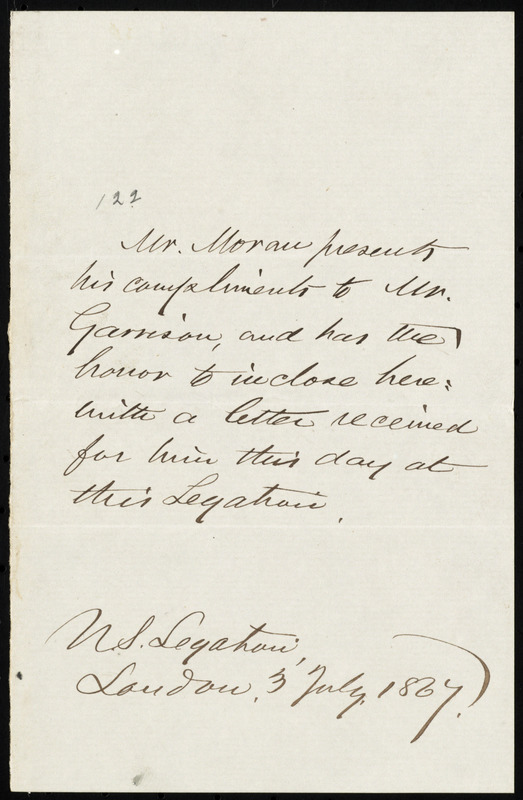 122
Mr. Moran presents
his compliments to Mr.
Garrison, and has the
honor to inclose here=
with a letter received
for him this day at
this Legation.
U.S. Legation,
London, 3 July, 1867.